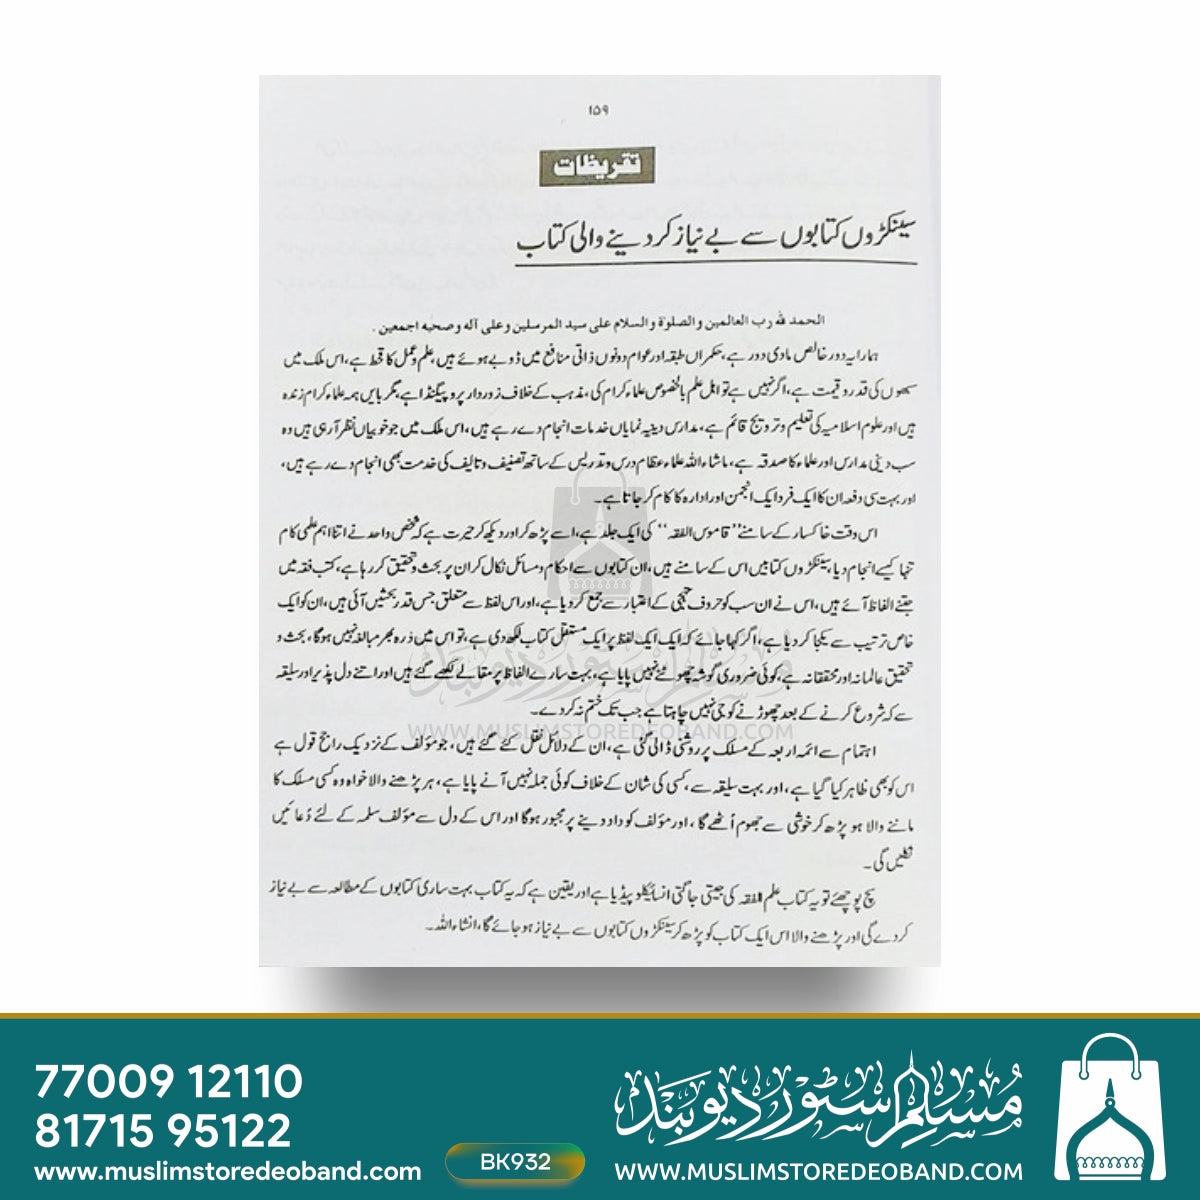 ۱۵۹
تقریظات
سینکڑوں کتابوں سے بے نیاز کر دینے والی کتاب
الحمد لله رب العالمين والصلوة والسلام على سيد المرسلين وعلى آله وصحبه اجمعين .
ہمارا یہ دور خالص مادی دور ہے، حکمراں طبقہ اور عوام دونوں ذاتی منافع میں ڈوبے ہوئے ہیں، علم و عمل کا قحط ہے، اس ملک میں
سبھوں کی قدر و قیمت ہے، اگر نہیں ہے تو اہل علم بالخصوص علماء کرام کی، مذہب کے خلاف زوردار پروپیگنڈا ہے، مگر بایں ہمہ علماء کرام زندہ
ہیں اور علوم اسلامیہ کی تعلیم و ترویج قائم ہے، مدارس دینیہ نمایاں خدمات انجام دے رہے ہیں، اس ملک میں جو خوبیاں نظر آ رہی ہیں وہ
سب دینی مدارس اور علماء کا صدقہ ہے، ماشاء اللہ علماء عظام درس و تدریس کے ساتھ تصنیف و تالیف کی خدمت بھی انجام دے رہے ہیں،
اور بہت سی دفعہ ان کا ایک فرد ایک انجمن اور ادارہ کا کام کر جاتا ہے۔
اس وقت خاکسار کے سامنے ’’قاموس الفقہ‘‘ کی ایک جلد ہے، اسے پڑھ کر اور دیکھ کر حیرت ہے کہ شخص واحد نے اتنا اہم علمی کام
تنہا کیسے انجام دیا، سینکڑوں کتابیں اس کے سامنے ہیں، ان کتابوں سے احکام و مسائل نکال کر ان پر بحث و تحقیق کر رہا ہے، کتب فقہ میں
جتنے الفاظ آئے ہیں، اس نے ان سب کو حروف تہجی کے اعتبار سے جمع کر دیا ہے، اور اس لفظ سے متعلق جس قدر بحثیں آئی ہیں، ان کو ایک
خاص ترتیب سے یکجا کر دیا ہے، اگر کہا جائے کہ ایک ایک لفظ پر ایک مستقل کتاب لکھ دی ہے، تو اس میں ذرہ بھر مبالغہ نہیں ہوگا، بحث و
تحقیق عالمانہ اور محققانہ ہے، کوئی ضروری گوشہ چھوٹنے نہیں پایا ہے، بہت سارے الفاظ پر مقالے لکھے گئے ہیں اور اتنے دل پذیر اور سلیقہ
سے کہ شروع کرنے کے بعد چھوڑنے کو جی نہیں چاہتا ہے جب تک ختم نہ کر دے۔
اہتمام سے ائمہ اربعہ کے مسلک پر روشنی ڈالی گئی ہے، ان کے دلائل نقل کئے گئے ہیں، جو مؤلف کے نزدیک راجح قول ہے
اس کو بھی ظاہر کیا گیا ہے، اور بہت سلیقہ سے، کسی کی شان کے خلاف کوئی جملہ نہیں آنے پایا ہے، ہر پڑھنے والا خواہ وہ کسی مسلک کا
ماننے والا ہو پڑھ کر خوشی سے جھوم اُٹھے گا، اور مؤلف کو داد دینے پر مجبور ہوگا اور اس کے دل سے مؤلف سلمہ کے لئے دُعائیں
نکلیں گی۔
سچ پوچھئے تو یہ کتاب علم الفقہ کی جیتی جاگتی انسائیکلوپیڈیا ہے اور یقین ہے کہ یہ کتاب بہت ساری کتابوں کے مطالعہ سے بے نیاز
کر دے گی اور پڑھنے والا اس ایک کتاب کو پڑھ کر سینکڑوں کتابوں سے بے نیاز ہو جائے گا، انشاء اللہ۔
مسلم سٹور دیوبند
WWW.MUSLIMSTOREDEOBAND.COM
77009 12110
81715 95122
www.muslimstoredeoband.com
BK932
مسلم سٹور دیوبند
WWW.MUSLIMSTOREDEOBAND.COM